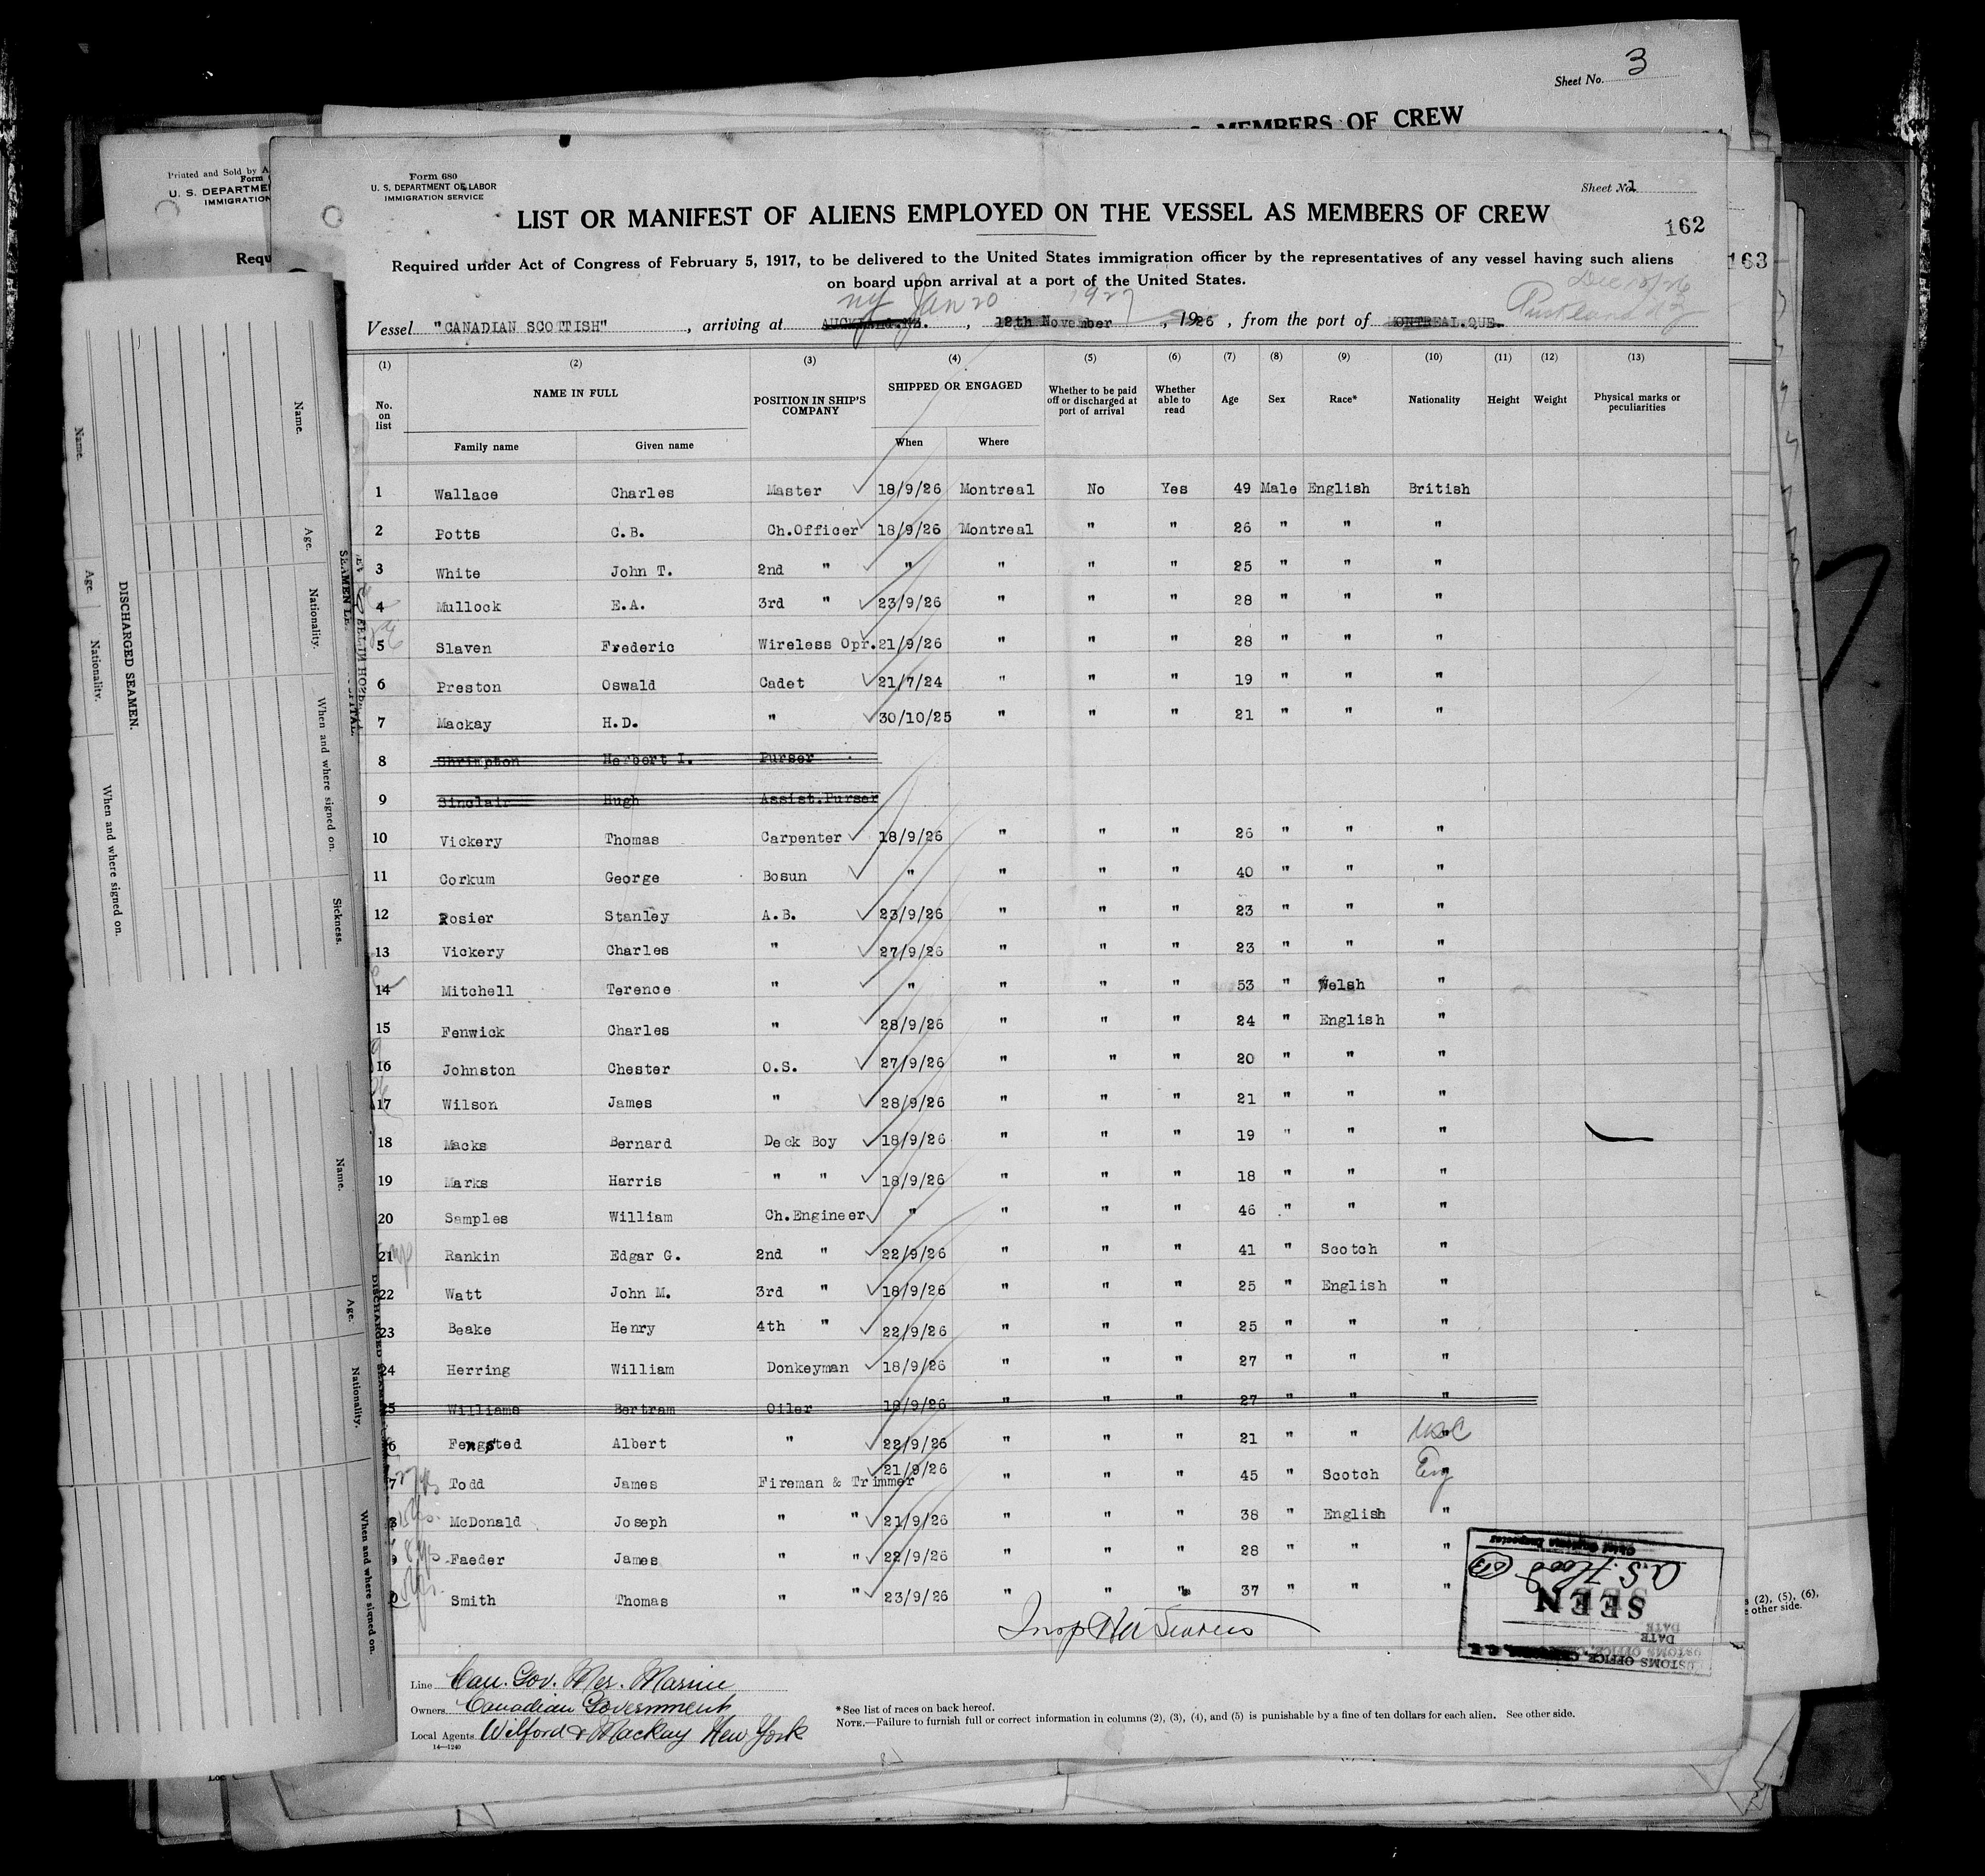 Sheet No. 3
MEMBERS OF CREW
Printed and Sold by A
Form
U. S. DEPARTME
IMMIGRATION
Requ
163
Form 680
U. S. DEPARTMENT OF LABOR
IMMIGRATION SERVICE
Sheet No. 1
LIST OR MANIFEST OF ALIENS EMPLOYED ON THE VESSEL AS MEMBERS OF CREW
162
Required under Act of Congress of February 5, 1917, to be delivered to the United States immigration officer by the representatives of any vessel having such aliens
on board upon arrival at a port of the United States.
ny Jan 20 1927
Vessel "CANADIAN SCOTTISH", arriving at AUCKLAND.NZ., 12th November, 1926, from the port of MONTREAL.QUE.
(1) (2) (3) (4) (5) (6) (7) (8) (9) (10) (11) (12) (13)
No. on list NAME IN FULL POSITION IN SHIP'S COMPANY SHIPPED OR ENGAGED Whether to be paid off or discharged at port of arrival Whether able to read Age Sex Race* Nationality Height Weight Physical marks or peculiarities
Family name Given name When Where
1 Wallace Charles Master 18/9/26 Montreal No Yes 49 Male English British
2 Potts C.B. Ch.Officer 18/9/26 Montreal " " 26 " " "
3 White John T. 2nd " " " " " 25 " " "
4 Mullock E.A. 3rd " 23/9/26 " " " 28 " " "
5 Slaven Frederic Wireless Opr. 21/9/26 " " " 28 " " "
6 Preston Oswald Cadet 21/7/24 " " " 19 " " "
7 Mackay H.D. " 30/10/25 " " " 21 " " "
8 Shrimpton Herbert I. Purser
9 Sinclair Hugh Assist.Purser
10 Vickery Thomas Carpenter 18/9/26 " " " 26 " " "
11 Corkum George Bosun " " " " 40 " " "
12 Rosier Stanley A.B. 23/9/26 " " " 23 " " "
13 Vickery Charles " 27/9/26 " " " 23 " " "
14 Mitchell Terence " " " " " 53 " Welsh "
15 Fenwick Charles " 28/9/26 " " " 24 " English "
16 Johnston Chester O.S. 27/9/26 " " " 20 " " "
17 Wilson James " 28/9/26 " " " 21 " " "
18 Macks Bernard Deck Boy 18/9/26 " " " 19 " " "
19 Marks Harris " " 18/9/26 " " " 18 " " "
20 Samples William Ch.Engineer " " " " 46 " " "
21 Rankin Edgar G. 2nd " 22/9/26 " " " 41 " Scotch "
22 Watt John M. 3rd " 18/9/26 " " " 25 " English "
23 Beake Henry 4th " 22/9/26 " " " 25 " " "
24 Herring William Donkeyman 18/9/26 " " " 27 " " "
5 Williams Bertram Oiler 18/9/26 " " " 27 " " "
6 Fengsted Albert " 22/9/26 " " " 21 " " "
7 Todd James Fireman & Trimmer 21/9/26 " " " 45 " Scotch Eng
8 McDonald Joseph " " 21/9/26 " " " 38 " English "
9 Faeder James " " 22/9/26 " " " 28 " " "
0 Smith Thomas " " 23/9/26 " " " 37 " " "
SEEN
DATE
Line Can. Gov. Mer. Marine
Owners Canadian Government
Local Agents Wilford & Mackay New York
14—1240
*See list of races on back hereof.
NOTE.—Failure to furnish full or correct information in columns (2), (3), (4), and (5) is punishable by a fine of ten dollars for each alien. See other side.
s (2), (5), (6),
e other side.
Name. Age. Nationality. When and where signed on. Sickness.
DISCHARGED SEAMEN.
Name. Age. Nationality. When and where signed on.
Name. Age. Nationality. When and where signed on.